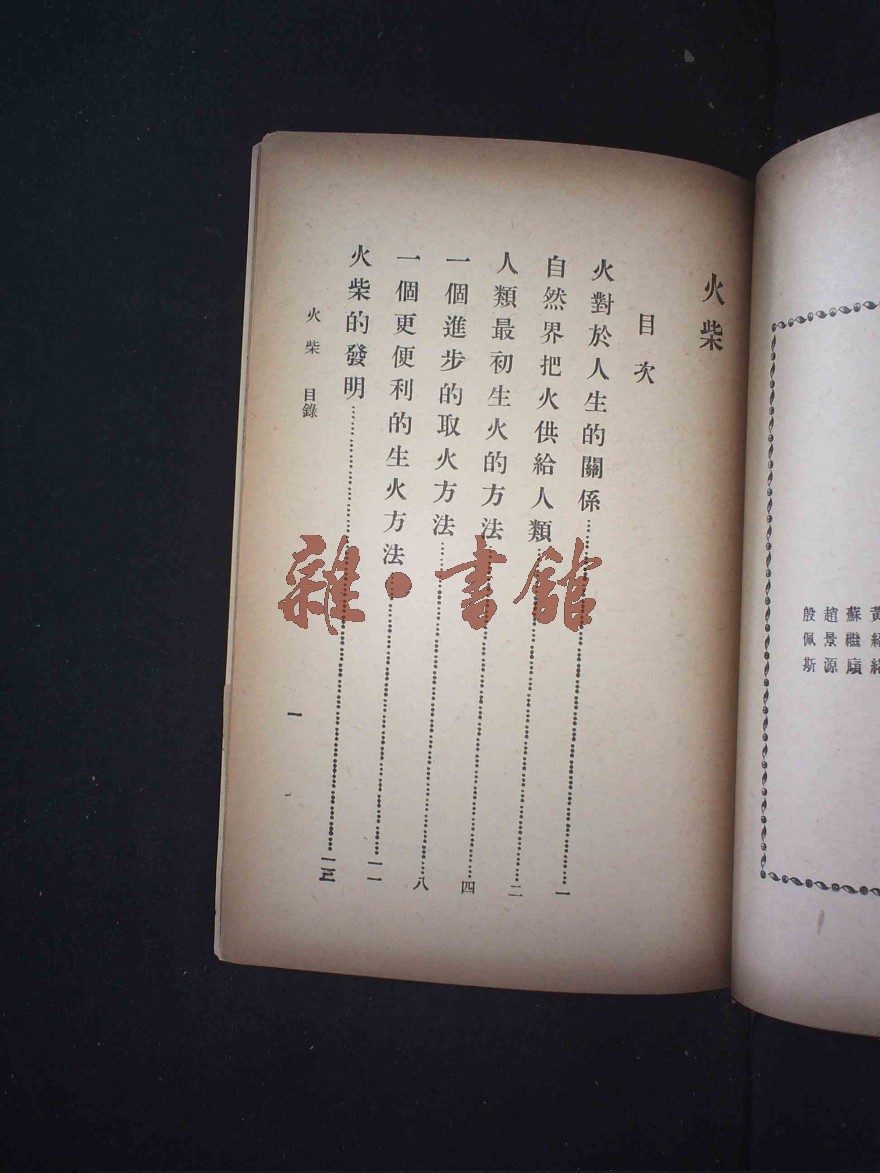 火柴
目次
火對於人生的關係……一
自然界把火供給人類……二
人類最初生火的方法……四
一個進步的取火方法……八
一個更便利的生火方法……一一
火柴的發明……一三
火柴 目錄
一
蘇繼廎
趙景源
殷佩斯
雜·書館